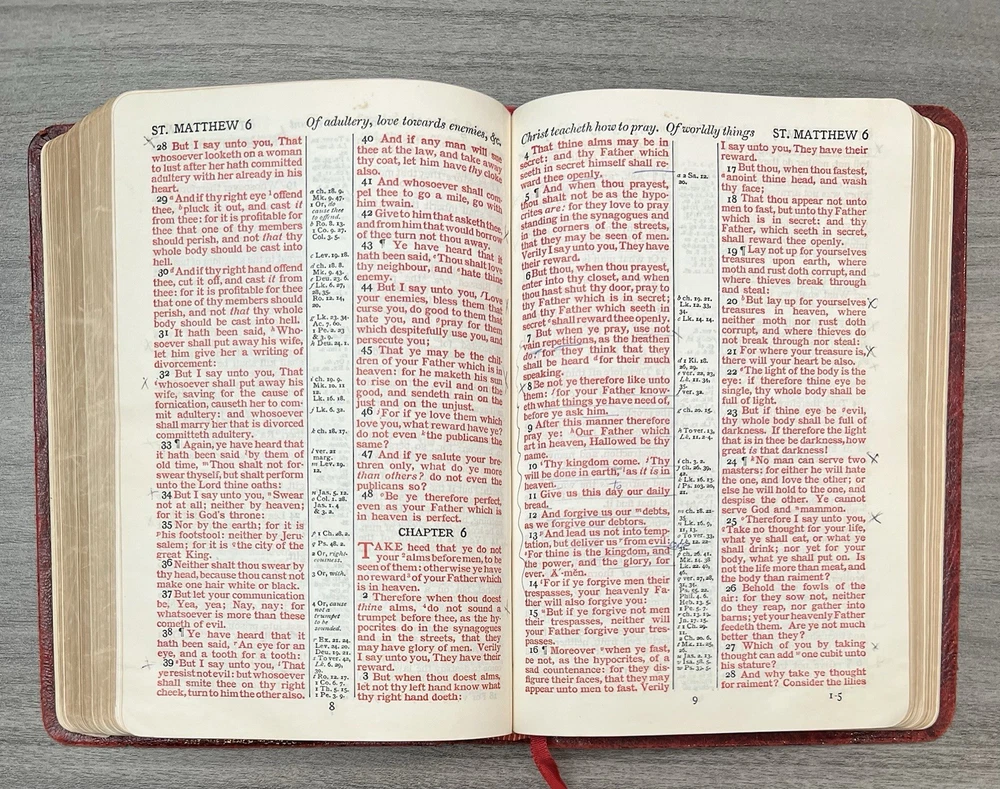 ST. MATTHEW 6
Of adultery, love towards enemies, &c.
28 But I say unto you, That
whosoever looketh on a woman
to lust after her hath committed
adultery with her already in his
heart.
29 And if thy right eye offend
thee, pluck it out, and cast it
from thee: for it is profitable for
thee that one of thy members
should perish, and not that thy
whole body should be cast into
hell.
30 And if thy right hand offend
thee, cut it off, and cast it from
thee: for it is profitable for thee
that one of thy members should
perish, and not that thy whole
body should be cast into hell.
31 It hath been said, Who-
soever shall put away his wife,
let him give her a writing of
divorcement:
32 But I say unto you, That
whosoever shall put away his
wife, saving for the cause of
fornication, causeth her to com-
mit adultery: and whosoever
shall marry her that is divorced
committeth adultery.
33 ¶ Again, ye have heard that
it hath been said by them of
old time, Thou shalt not for-
swear thyself, but shalt perform
unto the Lord thine oaths:
34 But I say unto you, Swear
not at all; neither by heaven;
for it is God's throne:
35 Nor by the earth; for it is
his footstool: neither by Jeru-
salem; for it is the city of the
great King.
36 Neither shalt thou swear by
thy head, because thou canst not
make one hair white or black.
37 But let your communication
be, Yea, yea; Nay, nay: for
whatsoever is more than these
cometh of evil.
38 ¶ Ye have heard that it
hath been said, An eye for an
eye, and a tooth for a tooth:
39 But I say unto you, That
ye resist not evil: but whosoever
shall smite thee on thy right
cheek, turn to him the other also.
a ch. 18. 9.
Mk. 9. 47.
1 Or, do
cause thee
to offend.
b Ro. 8. 13.
1 Co. 9. 27.
Col. 3. 5.
c Lev. 19. 18.
d ch. 18. 8.
Mk. 9. 43.
e Deu. 23. 6.
f Lk. 6. 27,
28, 35.
Ro. 12. 14,
20.
g Lk. 23. 34.
Ac. 7. 60.
1 Pe. 2. 23
& 3. 9.
h Deu. 24. 1.
i ch. 19. 9.
Mk. 10. 11
12.
Lk. 16. 18.
k Lk. 6. 32.
k ch. 18. 17.
l ver. 21
marg.
m Lev. 19.
12.
n Jas. 5. 12.
o Col. 1. 28.
Jas. 1. 4
& 3. 2.
p 1 Ch. 28. 2.
q Ps. 48. 2.
2 Or, right-
eousness.
3 Or, with.
4 Or, cause
not a
trumpet
to be
sounded.
r Ex. 21. 24.
Lev. 24. 20.
Deu. 19. 21.
Lk. 6. 29,
30.
Ro. 12. 17.
1 Co. 6. 7.
1 Th. 5. 15.
1 Pe. 3. 9.
40 And if any man will sue
thee at the law, and take away
thy coat, let him have thy cloke
also.
41 And whosoever shall com-
pel thee to go a mile, go with
him twain.
42 Give to him that asketh thee,
and from him that would borrow
of thee turn not thou away.
43 ¶ Ye have heard that it
hath been said, Thou shalt love
thy neighbour, and hate thine
enemy.
44 But I say unto you, Love
your enemies, bless them that
curse you, do good to them that
hate you, and pray for them
which despitefully use you, and
persecute you;
45 That ye may be the chil-
dren of your Father which is in
heaven: for he maketh his sun
to rise on the evil and on the
good, and sendeth rain on the
just and on the unjust.
46 For if ye love them which
love you, what reward have ye?
do not even the publicans the
same?
47 And if ye salute your bre-
thren only, what do ye more
than others? do not even the
publicans so?
48 Be ye therefore perfect,
even as your Father which is
in heaven is perfect.
CHAPTER 6
TAKE heed that ye do not
your alms before men, to be
seen of them: otherwise ye have
no reward of your Father which
is in heaven.
2 Therefore when thou doest
thine alms, do not sound a
trumpet before thee, as the hy-
pocrites do in the synagogues
and in the streets, that they
may have glory of men. Verily
I say unto you, They have their
reward.
3 But when thou doest alms,
let not thy left hand know what
thy right hand doeth:
8
Christ teacheth how to pray. Of worldly things
ST. MATTHEW 6
4 That thine alms may be in
secret: and thy Father which
seeth in secret himself shall re-
ward thee openly.
5 ¶ And when thou prayest,
thou shalt not be as the hypo-
crites are: for they love to pray
standing in the synagogues and
in the corners of the streets,
that they may be seen of men.
Verily I say unto you, They have
their reward.
6 But thou, when thou prayest,
enter into thy closet, and when
thou hast shut thy door, pray to
thy Father which is in secret;
and thy Father which seeth in
secret shall reward thee openly.
7 But when ye pray, use not
vain repetitions, as the heathen
do: for they think that they
shall be heard for their much
speaking.
8 Be not ye therefore like unto
them: for your Father know-
eth what things ye have need of,
before ye ask him.
9 After this manner therefore
pray ye: Our Father which
art in heaven, Hallowed be thy
name.
10 Thy kingdom come. Thy
will be done in earth, as it is in
heaven.
11 Give us this day our daily
bread.
12 And forgive us our debts,
as we forgive our debtors.
13 And lead us not into temp-
tation, but deliver us from evil:
For thine is the kingdom, and
the power, and the glory, for
ever. A´-men.
14 For if ye forgive men their
trespasses, your heavenly Fa-
ther will also forgive you:
15 But if ye forgive not men
their trespasses, neither will
your Father forgive your tres-
passes.
16 ¶ Moreover when ye fast,
be not, as the hypocrites, of a
sad countenance: for they dis-
figure their faces, that they may
appear unto men to fast. Verily
a 2 Sa. 12.
20.
b ch. 19. 21.
Lk. 12. 33,
34.
c Lk. 14. 14.
d 1 Ki. 18.
26, 29.
e ver. 22, 23,
Lk. 11. 34,
35.
f ver. 32.
g ch. 20. 15.
h To ver. 13,
Lk. 11. 2-4.
i ch. 3. 2.
j ch. 26. 39,
42.
k Lk. 16. 13.
l Ps. 103. 20,
21.
I say unto you, They have their
reward.
17 But thou, when thou fastest,
anoint thine head, and wash
thy face;
18 That thou appear not unto
men to fast, but unto thy Father
which is in secret: and thy
Father, which seeth in secret,
shall reward thee openly.
19 ¶ Lay not up for yourselves
treasures upon earth, where
moth and rust doth corrupt, and
where thieves break through
and steal:
20 But lay up for yourselves
treasures in heaven, where
neither moth nor rust doth
corrupt, and where thieves do
not break through nor steal:
21 For where your treasure is,
there will your heart be also.
22 The light of the body is the
eye: if therefore thine eye be
single, thy whole body shall be
full of light.
23 But if thine eye be evil,
thy whole body shall be full of
darkness. If therefore the light
that is in thee be darkness, how
great is that darkness!
24 ¶ No man can serve two
masters: for either he will hate
the one, and love the other; or
else he will hold to the one, and
despise the other. Ye cannot
serve God and mammon.
25 Therefore I say unto you,
Take no thought for your life,
what ye shall eat, or what ye
shall drink; nor yet for your
body, what ye shall put on. Is
not the life more than meat, and
the body than raiment?
26 Behold the fowls of the
air: for they sow not, neither
do they reap, nor gather into
barns; yet your heavenly Father
feedeth them. Are ye not much
better than they?
27 Which of you by taking
thought can add one cubit unto
his stature?
28 And why take ye thought
for raiment? Consider the lilies
9
1-5